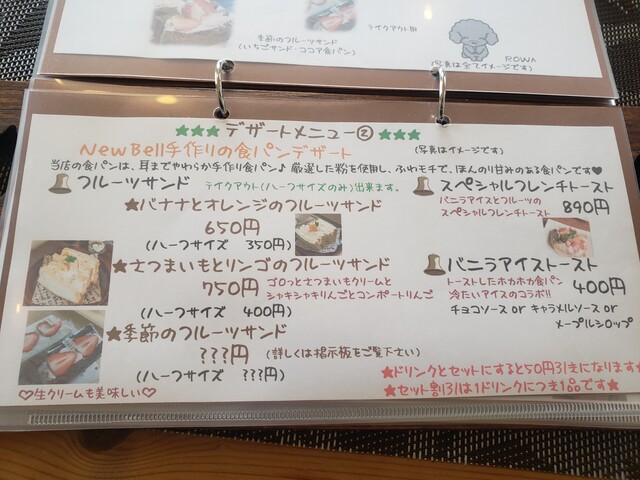 季節のフルーツサンド
(いちごサンド・ココア食パン)
テイクアウト用
ROWA
(写真は全てイメージです)
★★★デザートメニュー②★★★
NewBell手作りの食パンデザート
(写真はイメージです)
当店の食パンは、耳までやわらか手作り食パン♪ 厳選した粉を使用し、ふわモチで、ほんのり甘みのある食パンです♥
フルーツサンド
テイクアウト(ハーフサイズのみ)出来ます。
★バナナとオレンジのフルーツサンド
650円
(ハーフサイズ 350円)
★さつまいもとリンゴのフルーツサンド
750円
ゴロっとさつまいもクリームと
シャキシャキりんごとコンポートりんご
(ハーフサイズ 400円)
★季節のフルーツサンド
???円
(詳しくは掲示板をご覧下さい)
(ハーフサイズ ???円)
♡生クリームも美味しい♡
スペシャルフレンチトースト
バニラアイスとフルーツの
スペシャルフレンチトースト
890円
バニラアイストースト
トーストしたホカホカ食パン
冷たいアイスのコラボ!!
400円
チョコソース or キャラメルソース or
メープルシロップ
★ドリンクとセットにすると50円引きになります★
★セット割引は1ドリンクにつき1品です★